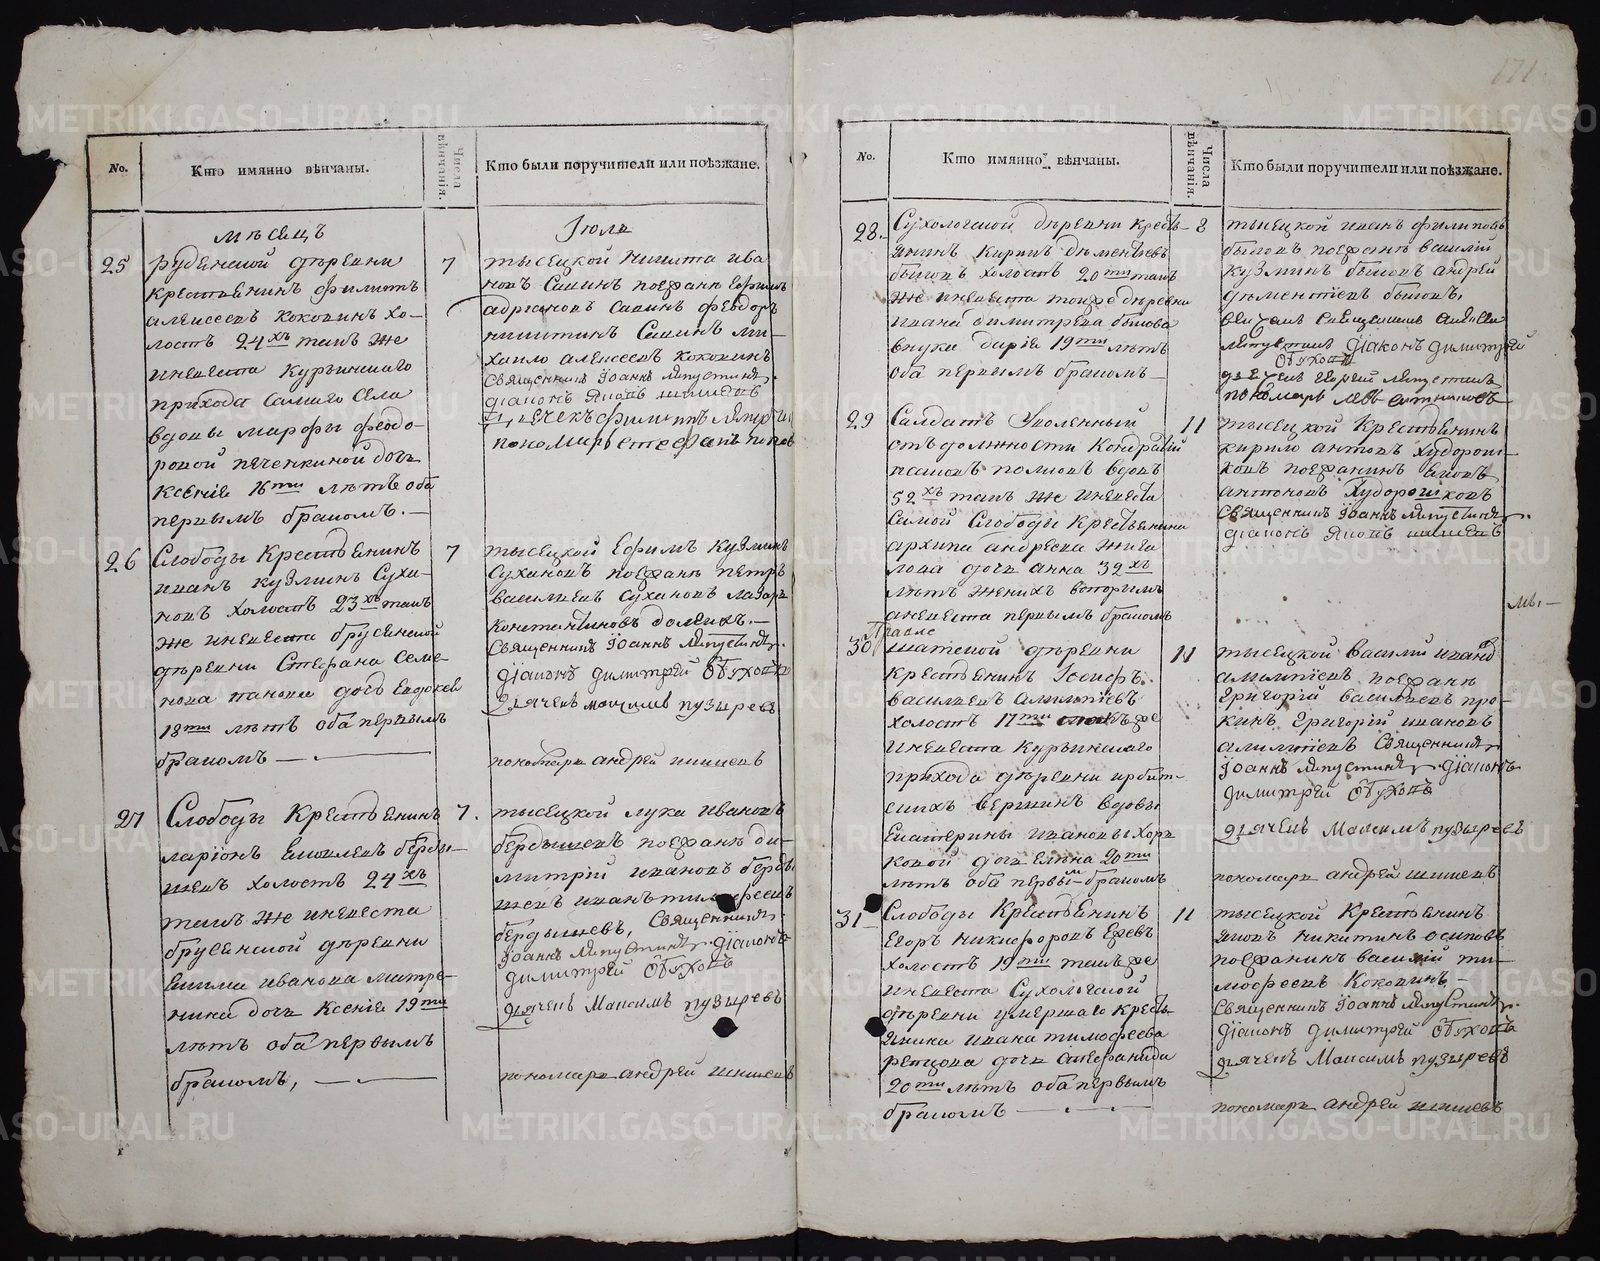 171
No.
Кто имянно вѣнчаны.
Числа вѣнчанія.
Кто были поручители или поѣзжане.
мѣсяцъ
Іюль
25
Руденской деревни
крестьянинъ филипъ
алексеевъ коковинъ хо-
лостъ 24хъ такъ же
и невеста курьинскаго
прихода самаго села
вдовы марфы федо-
ровой печенкиной дочь
Ксенiя 16ти летъ оба
первымъ бракомъ. —
7
тысецкой никита ива
новъ Савинъ поезжане ефимъ
адриановъ Савинъ феодоръ
никитинъ Савинъ ми-
хаило алексеевъ коковинъ
Священникъ Іоаннъ Ляпустинъ
діаконъ Яковъ шишевъ
пономарь стефанъ поповъ
26
Слободы Крестьянинъ
иванъ кузминъ Суха-
новъ холостъ 23хъ такъ
же и невеста брусенской
деревни Стефана Семе-
нова панова дочь Евдокея
18ти летъ оба первымъ
бракомъ —
7
тысецкой Ефимъ кузминъ
Сухановъ поезжане петръ
васильевъ Сухановъ лазарь
константиновъ долгихъ. —
Священникъ Іоаннъ Ляпустинъ
діаконъ димитрей Обуховъ
дьячекъ максимъ пузыревъ
пономарь андрей шишевъ
27
Слободы Крестьянинъ
ларіонъ Яковлевъ берды-
шевъ холостъ 24хъ
такъ же и невеста
брусенской деревни
Екима иванова митре-
нина дочь Ксенія 19ти
летъ оба первымъ
бракомъ, —
7.
тысецкой лука ивановъ
бердышевъ поезжане ди-
митрій ивановъ берды
шевъ иванъ тимофеевъ
бердышевъ, Священникъ
Іоаннъ Ляпустинъ діаконъ
димитрей Обуховъ
дьячекъ Максимъ пузыревъ
пономарь андрей шишевъ
No.
Кто имянно вѣнчаны.
Числа вѣнчанія.
Кто были поручители или поѣзжане.
28.
Сухоложской деревни кресть-
янинъ Кирилъ деменьтевъ
быковъ холостъ 20ти такъ
же и невеста тойже деревни
ивана димитрева быкова
внука дарія 19ти летъ
оба первымъ бракомъ
8
тысецкой иванъ филиповъ
быковъ поезжане василій
кузминъ быковъ андрей
дементіевъ быковъ,
діаконъ димитрей
Обуховъ
пономарь левъ
29
Салдатъ Уволенный
отъ должности Кондратій
вдовъ
52хъ такъ же и невеста
Самой Слободы Крестьянина
архипа андреева
дочь анна 32хъ
летъ жених вторымъ
а невеста первымъ бракомъ
11
тысецкой Крестьянинъ
кирило антоновъ худорош-
ковъ поезжанинъ Яковъ
антоновъ Худорошковъ
Священникъ Іоаннъ Ляпустинъ
діаконъ Яковъ шишевъ
30
шатской деревни
Крестьянинъ Іосифъ
васильевъ алимпіевъ
холостъ 17ти
и невеста курьинскаго
прихода деревни ирбит-
скихъ вершинъ вдовы
Екатерины ивановы
дочь Елена 20ти
летъ оба первым бракомъ
11
тысецкой василій ивановъ
алимпіевъ поезжане
григорій васильевъ про-
кинъ григорій ивановъ
алимпіевъ Священникъ
Іоаннъ Ляпустинъ діаконъ
димитрей Обуховъ
дьячекъ Максимъ пузыревъ
пономарь андрей шишевъ
31
Слободы Крестьянинъ
Егоръ никифоровъ
холостъ 19ти такъ же
и невеста Сухоложской
деревни умершаго кресть
янина ивана тимофеева
дочь стефанида
20ти летъ оба первымъ
бракомъ —
11
тысецкой Крестьянинъ
Яковъ никитинъ осиповъ
поезжанинъ василій ти-
мофеевъ Коковинъ
Священникъ Іоаннъ Ляпустинъ
діаконъ димитрей Обуховъ
дьячекъ Максимъ пузыревъ
пономарь андрей шишевъ
METRIKI.GASO-URAL.RU